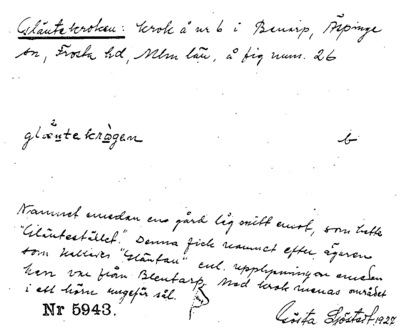 Gläntekroken: krok å nr 6 i Benarp, Äspinge
sn, Frosta hd, Mlm län, å fig num. 26
glæntekrågen b
Namnet emedan ens gård låg mitt emot, som hette
"Gläntestället". Denna fick namnet efter ägaren
som kallades "Gläntan" enl. upplysningen emedan
han var från Blentarp. Med krok menas området
i ett hörn ungefär så:
Nr 5943. Gösta Sjöstedt 1927